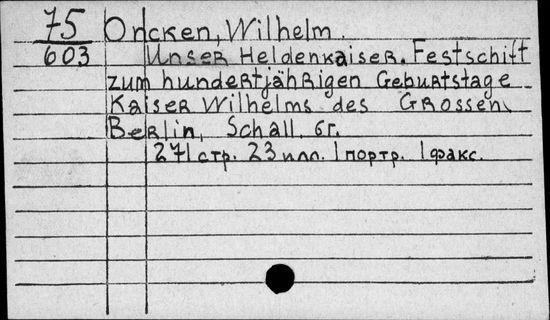 75 Oncken, Wilhelm.
603 Unser Heldenkaiser. Festschift
zum hundertjährigen Geburtstage
Kaiser Wilhelms des Grossen.
Berlin, Schall. бг.
271 стр. 23 илл. 1 портр. 1 факс.